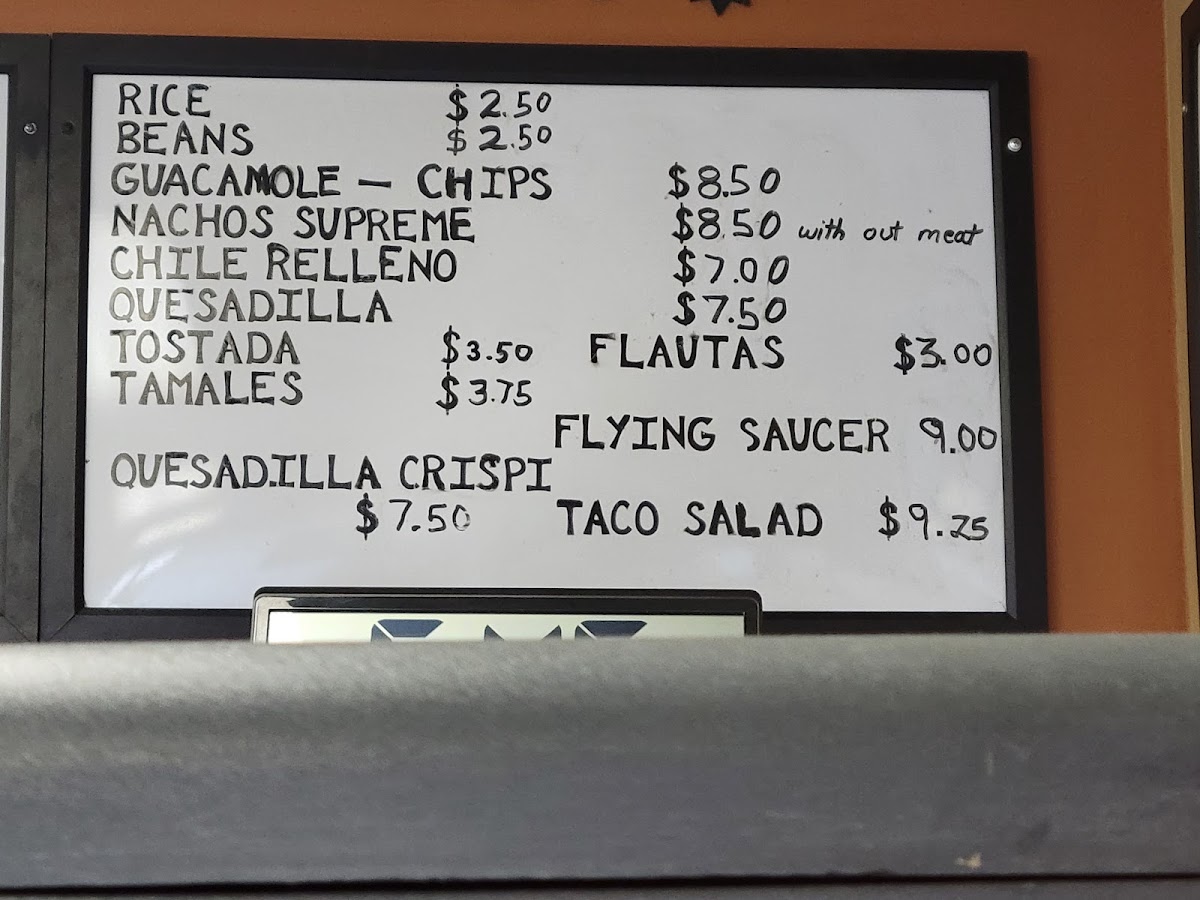 RICE $2.50
BEANS $2.50
GUACAMOLE — CHIPS $8.50
NACHOS SUPREME $8.50 with out meat
CHILE RELLENO $7.00
QUESADILLA $7.50
TOSTADA $3.50 FLAUTAS $3.00
TAMALES $3.75
FLYING SAUCER 9.00
QUESADILLA CRISPI
$7.50 TACO SALAD $9.25